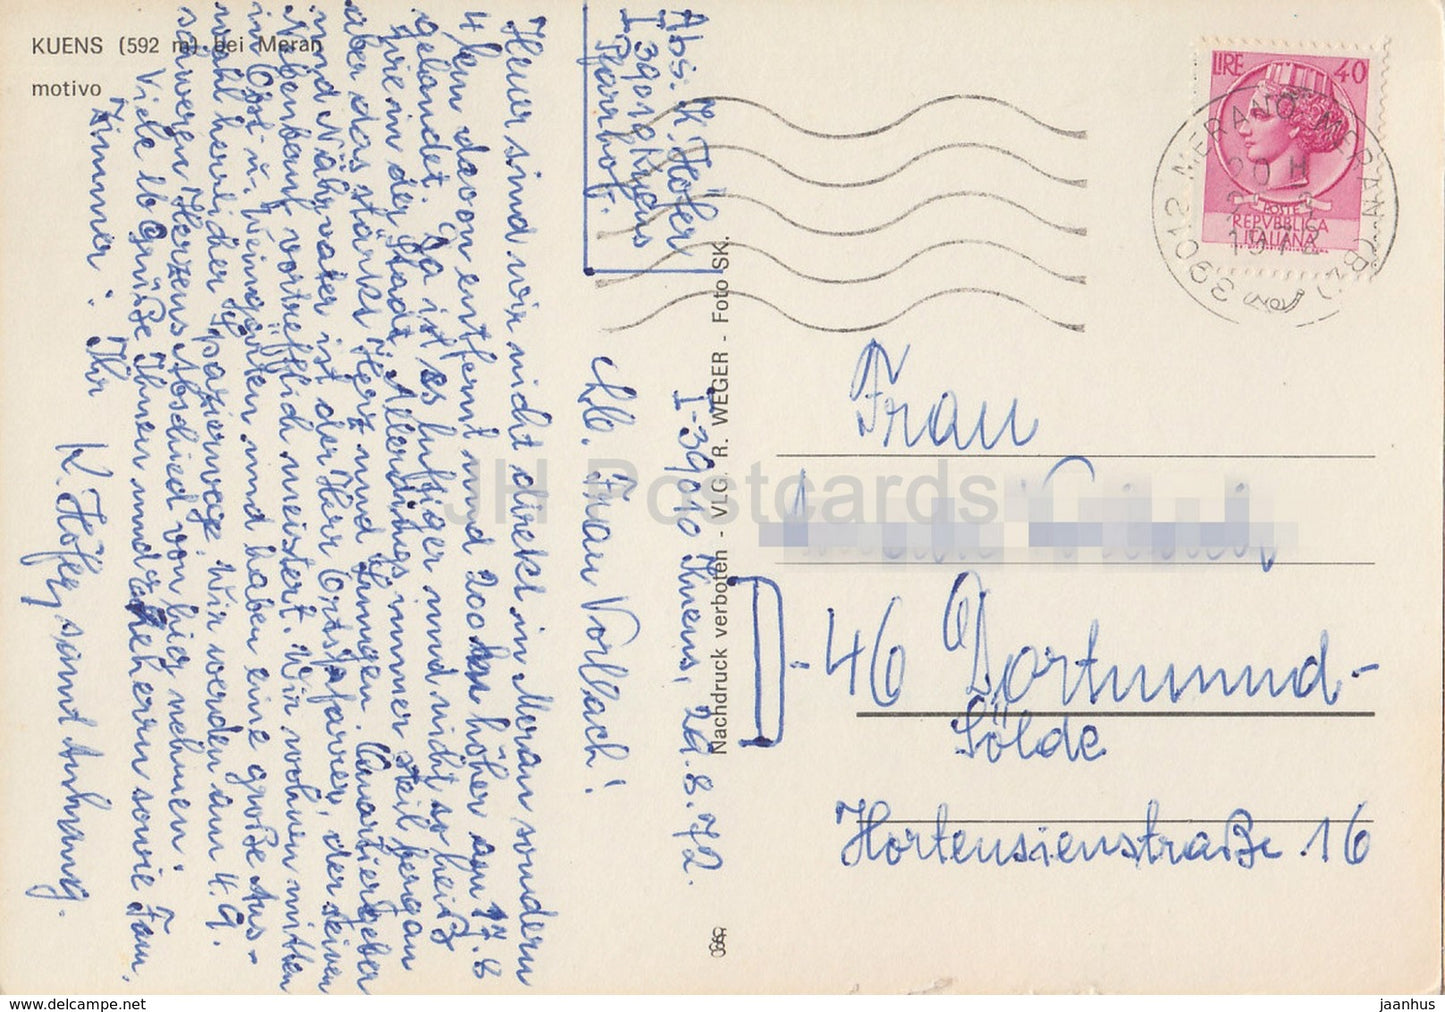 KUENS (592 m) bei Meran
motivo
Abs: K. Höfer
I 39010 Kuens
Pfarrhof.
I-39010 Kuens, 22.8.72.
Lb. Frau Vorllach!
Heuer sind wir nicht direkt in Meran sondern
4 km davon entfernt und 200 m höher am 17.8
gelandet. Da ist es luftiger und nicht so heiß
wie in der Stadt. Allerdings immer steil bergan
aber das stärkt Herz und Lungen. Quartiergeber
und Nährvater ist der Herr Ortspfarrer, der seinen
Nebenberuf vortrefflich meistert. Wir wohnen mitten
in Obst u. Weingärten und haben eine große Aus-
wahl herrlicher Spazierwege. Wir werden am 4.9.
schweren Herzens Abschied von hier nehmen.
Viele lb Grüße Ihnen und Eheherrn sowie Fam.
Zimmer. Ihr
K. Höfer samt Anhang.
Nachdruck verboten - VLG. R. WEGER - Foto SK.
LIRE 40
POSTE
REPVBBLICA
ITALIANA
39012 MERANO MERAN (BZ)
20 H
1972
Frau
D-46 Dortmund-
Sölde
Hortensienstraße 16
JH Postcards
jaanhus
www.delcampe.net